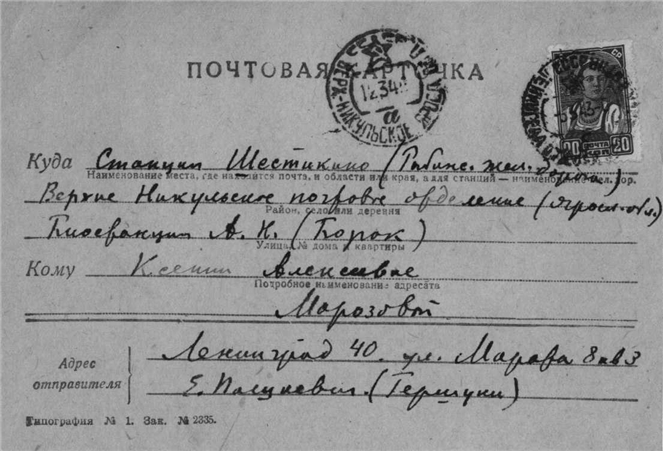 ПОЧТОВАЯ КАРТОЧКА
ВЕРХ-НИКУЛЬСКОЕ
а
ПОЧТА
20 КОП 20
Куда Станция Шестихино (Рыбинс. жел. дорога)
Наименование места, где находится почта, и области или края, а для станций — наименование жел. дор.
Верхне Никульское почтовое отделение (Яросл. обл.)
Район, село или деревня
Биостанция А. Н. (Борок)
Улица, № дома и квартиры
Кому Ксении Алексеевне
Подробное наименование адресата
Марозовой
Адрес отправителя
Ленинград 40. ул. Марата 8 кв 3
Е.
Типография № 1. Зак. № 2335.